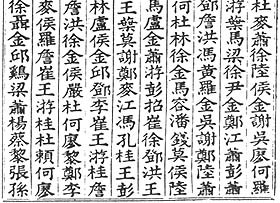 羅彭彭陸王彭詹李廖孫
何蕭蕭侯洪王桂鄭何張
廖江鄭吳鄧桂游廖賴黎
吳鄭謝錢徐孔王何杜蔡
謝金吳潘崔馮崔杜桂楊
金尹金容招江李嚴游蕭
侯徐羅馬彭麥鄧侯王梁
陸梁黃金游鄭邱金崔鷄
徐馬馬徐蕭謝金徐詹邱
蕭葉洪林金莫侯洪羅金
麥游詹杜盧葉盧詹侯聶
杜鄧何馬王林麥徐